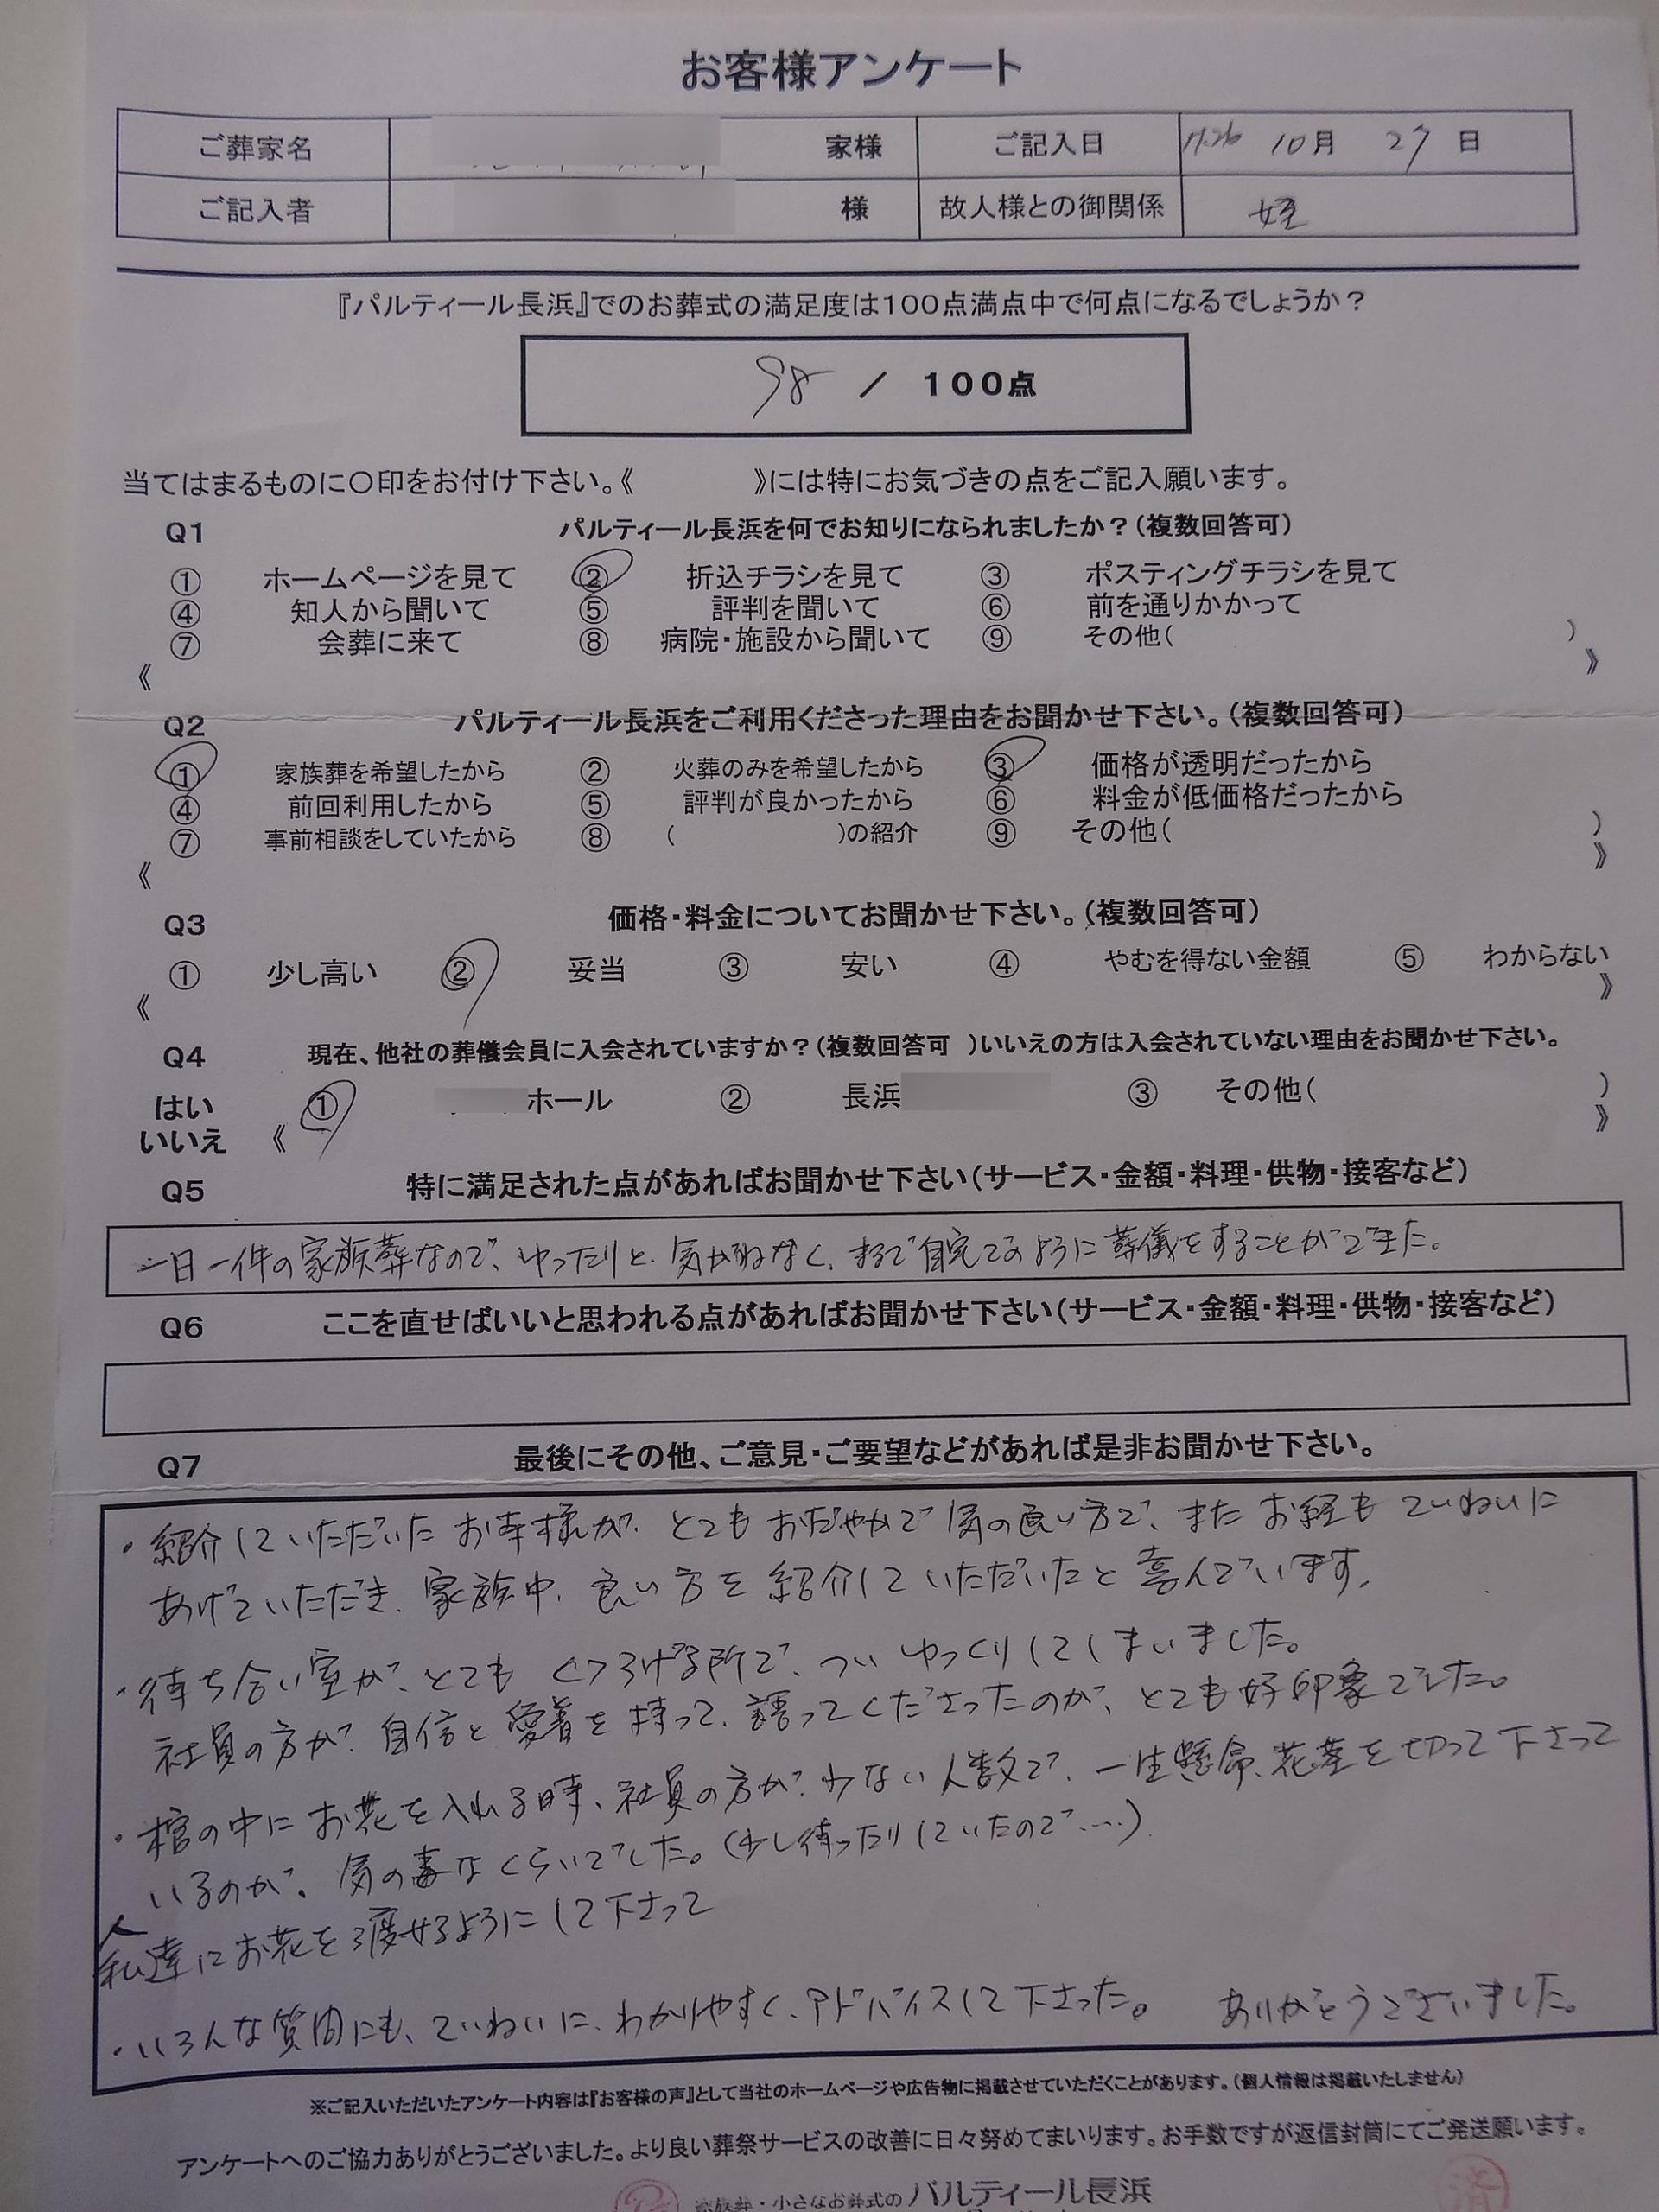 お客様アンケート
ご葬家名 家様 ご記入日 H.26 10月 27日
ご記入者 様 故人様との御関係 姪
『パルティール長浜』でのお葬式の満足度は100点満点中で何点になるでしょうか？
98 / 100点
当てはまるものに〇印をお付け下さい。《 》には特にお気づきの点をご記入願います。
Q1 パルティール長浜を何でお知りになられましたか？(複数回答可)
① ホームページを見て ② 折込チラシを見て ③ ポスティングチラシを見て
④ 知人から聞いて ⑤ 評判を聞いて ⑥ 前を通りかかって
⑦ 会葬に来て ⑧ 病院・施設から聞いて ⑨ その他( )
《 》
Q2 パルティール長浜をご利用くださった理由をお聞かせ下さい。(複数回答可)
① 家族葬を希望したから ② 火葬のみを希望したから ③ 価格が透明だったから
④ 前回利用したから ⑤ 評判が良かったから ⑥ 料金が低価格だったから
⑦ 事前相談をしていたから ⑧ ( )の紹介 ⑨ その他( )
《 》
Q3 価格・料金についてお聞かせ下さい。(複数回答可)
① 少し高い ② 妥当 ③ 安い ④ やむを得ない金額 ⑤ わからない
《 》
Q4 現在、他社の葬儀会員に入会されていますか？(複数回答可 )いいえの方は入会されていない理由をお聞かせ下さい。
はい ① ホール ② 長浜 ③ その他( )
いいえ 《 》
Q5 特に満足された点があればお聞かせ下さい(サービス・金額・料理・供物・接客など)
一日一件の家族葬なので、ゆったりと、気がねなく、まるで自宅でのように葬儀をすることができました。
Q6 ここを直せばいいと思われる点があればお聞かせ下さい(サービス・金額・料理・供物・接客など)
Q7 最後にその他、ご意見・ご要望などがあれば是非お聞かせ下さい。
・紹介していただいたお寺様が、とてもおだやかで気の良い方で、またお経もていねいに
あげていただき、家族中、良い方を紹介していただいたと喜んでいます。
・待ち合い室が、とてもくつろげる所で、ついゆっくりしてしまいました。
社員の方が、自信と愛着を持って、語ってくださったのが、とても好印象でした。
・棺の中にお花を入れる時、社員の方が、少ない人数で、一生懸命、花茎を切って下さって
いるのが、気の毒なくらいでした。(少し待ったりしていたので…)
私達にお花を渡せるようにして下さって
・いろんな質問にも、ていねいに、わかりやすく、アドバイスして下さった。 ありがとうございました。
※ご記入いただいたアンケート内容は『お客様の声』として当社のホームページや広告物に掲載させていただくことがあります。(個人情報は掲載いたしません)
アンケートへのご協力ありがとうございました。より良い葬祭サービスの改善に日々努めてまいります。お手数ですが返信封筒にてご発送願います。
家族葬・小さなお葬式の パルティール長浜
済